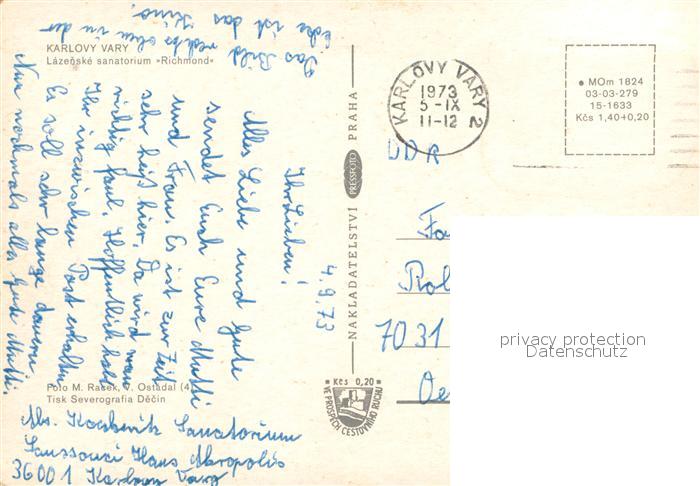 KARLOVY VARY
Lázeňské sanatorium »Richmond«
Das Bild rechts oben in der
Ecke ist das Kino.
4.9.73
Ihr Lieben!
Alles Liebe und Gute
sendet Euch Eure Mutti
und Frau. Es ist zur Zeit
sehr heiß hier. Da wird man
richtig faul. Hoffentlich habt
Ihr inzwischen Post erhalten
Es soll sehr lange dauern.
Nun nochmals alles Gute Mutti.
Foto M. Rašek, V. Ostádal (4)
Tisk Severografia Děčín
Abs. Sanatorium
Sanssouci Haus Akropolis
36001 Karlovy Vary
NAKLADATELSTVÍ PRESSFOTO PRAHA
KARLOVY VARY 2
1973
5-IX
11-12
• MOm 1824
03-03-279
15-1633
Kčs 1,40+0,20
DDR
Fa
Rol
7031
Oe
Kčs 0,20
VE PROSPĚCH CESTOVNÍHO RUCHU
privacy protection
Datenschutz